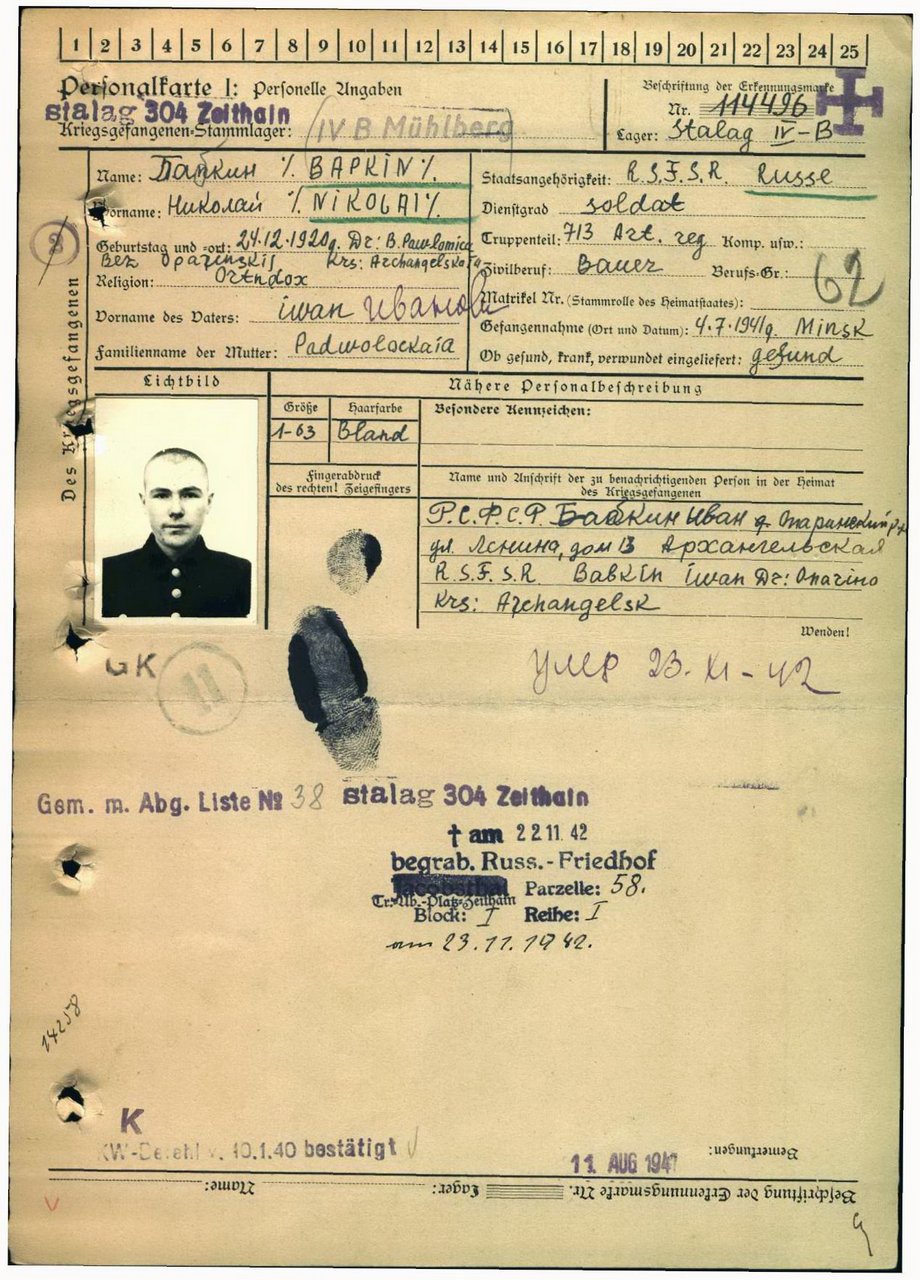 1 2 3 4 5 6 7 8 9 10 11 12 13 14 15 16 17 18 19 20 21 22 23 24 25
Personalkarte I: Personelle Angaben
Stalag 304 Zeithain
Kriegsgefangenen-Stammlager: IV B Mühlberg
Beschriftung der Erkennungsmarke
Nr. 114496
Lager: Stalag IV-B
Des Kriegsgefangenen
Name: Бабкин ٪ BAPKIN ٪
Vorname: Николай ٪ NIKOLAI ٪
Geburtstag und -ort: 24.12.1920g. Dr: B.Pawlomica
Bez Oparinskij Krs: Archangelskaja
Religion: Ortndox
Vorname des Vaters: iwan Иванов
Familienname der Mutter: Padwolockaia
Staatsangehörigkeit: R.S.F.S.R. Russe
Dienstgrad soldat
Truppenteil: 713 Art. reg Komp. usw.:
Zivilberuf: Bauer Berufs-Gr.: 62
Matrikel Nr. (Stammrolle des Heimatstaates):
Gefangennahme (Ort und Datum): 4.7.1941g. Minsk
Ob gesund, krank, verwundet eingeliefert: gesund
Lichtbild
Nähere Personalbeschreibung
Größe Haarfarbe Besondere Kennzeichen:
1-63 Bland
Fingerabdruck
des rechten! Zeigefingers
Name und Anschrift der zu benachrichtigenden Person in der Heimat
des Kriegsgefangenen
Р.С.Ф.С.Р. Бабкин Иван д. Опаринский
ул. Ленина, дом 13 Архангельская
R.S.F.S.R. Babkin iwan Dr: Onarino
Krs: Archangelsk
Wenden!
GK 11
умер 23.XI-42
Gem. m. Abg. Liste № 38 Stalag 304 Zeithain
† am 22 11. 42
begrab. Russ.-Friedhof
Jacobsthal Parzelle: 58.
Tr.-Üb.-Platz-Zeithain
Block: I Reihe: I
am 23.11.1942.
14258
K
KW-Befehl v. 10.1.40 bestätigt
11. AUG 1941
Bemerkungen:
Beschriftung der Erkennungsmarke Nr. Lager: Name: